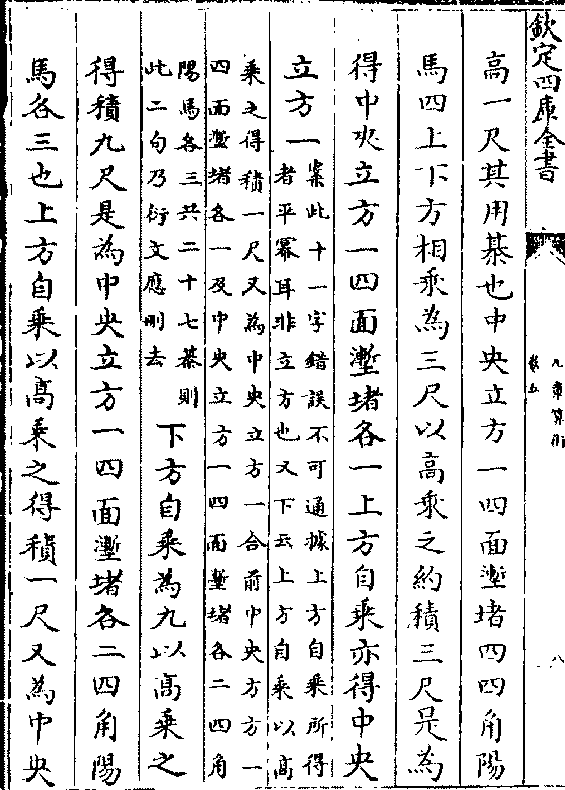 欽定四庫全書
九章算術
卷五
八
高一尺其用棊也中央立方一四面壍堵四四角陽
馬四上下方相乘為三尺以高乘之約積三尺是為
得中央立方一四面壍堵各一上方自乘亦得中央
立方一
案此十一字錯誤不可通據上方自乘所得
者平冪耳非立方也又下云上方自乘以高
乘之得積一尺又為中央立方一合前中央方方一
四面壍堵各一及中央立方一四面壍堵各二四角
陽馬各三共二十七棊則
此二句乃衍文應刪去
下方自乘為九以高乘之
得積九尺是為中央立方一四面壍堵各二四角陽
馬各三也上方自乘以高乘之得積一尺又為中央